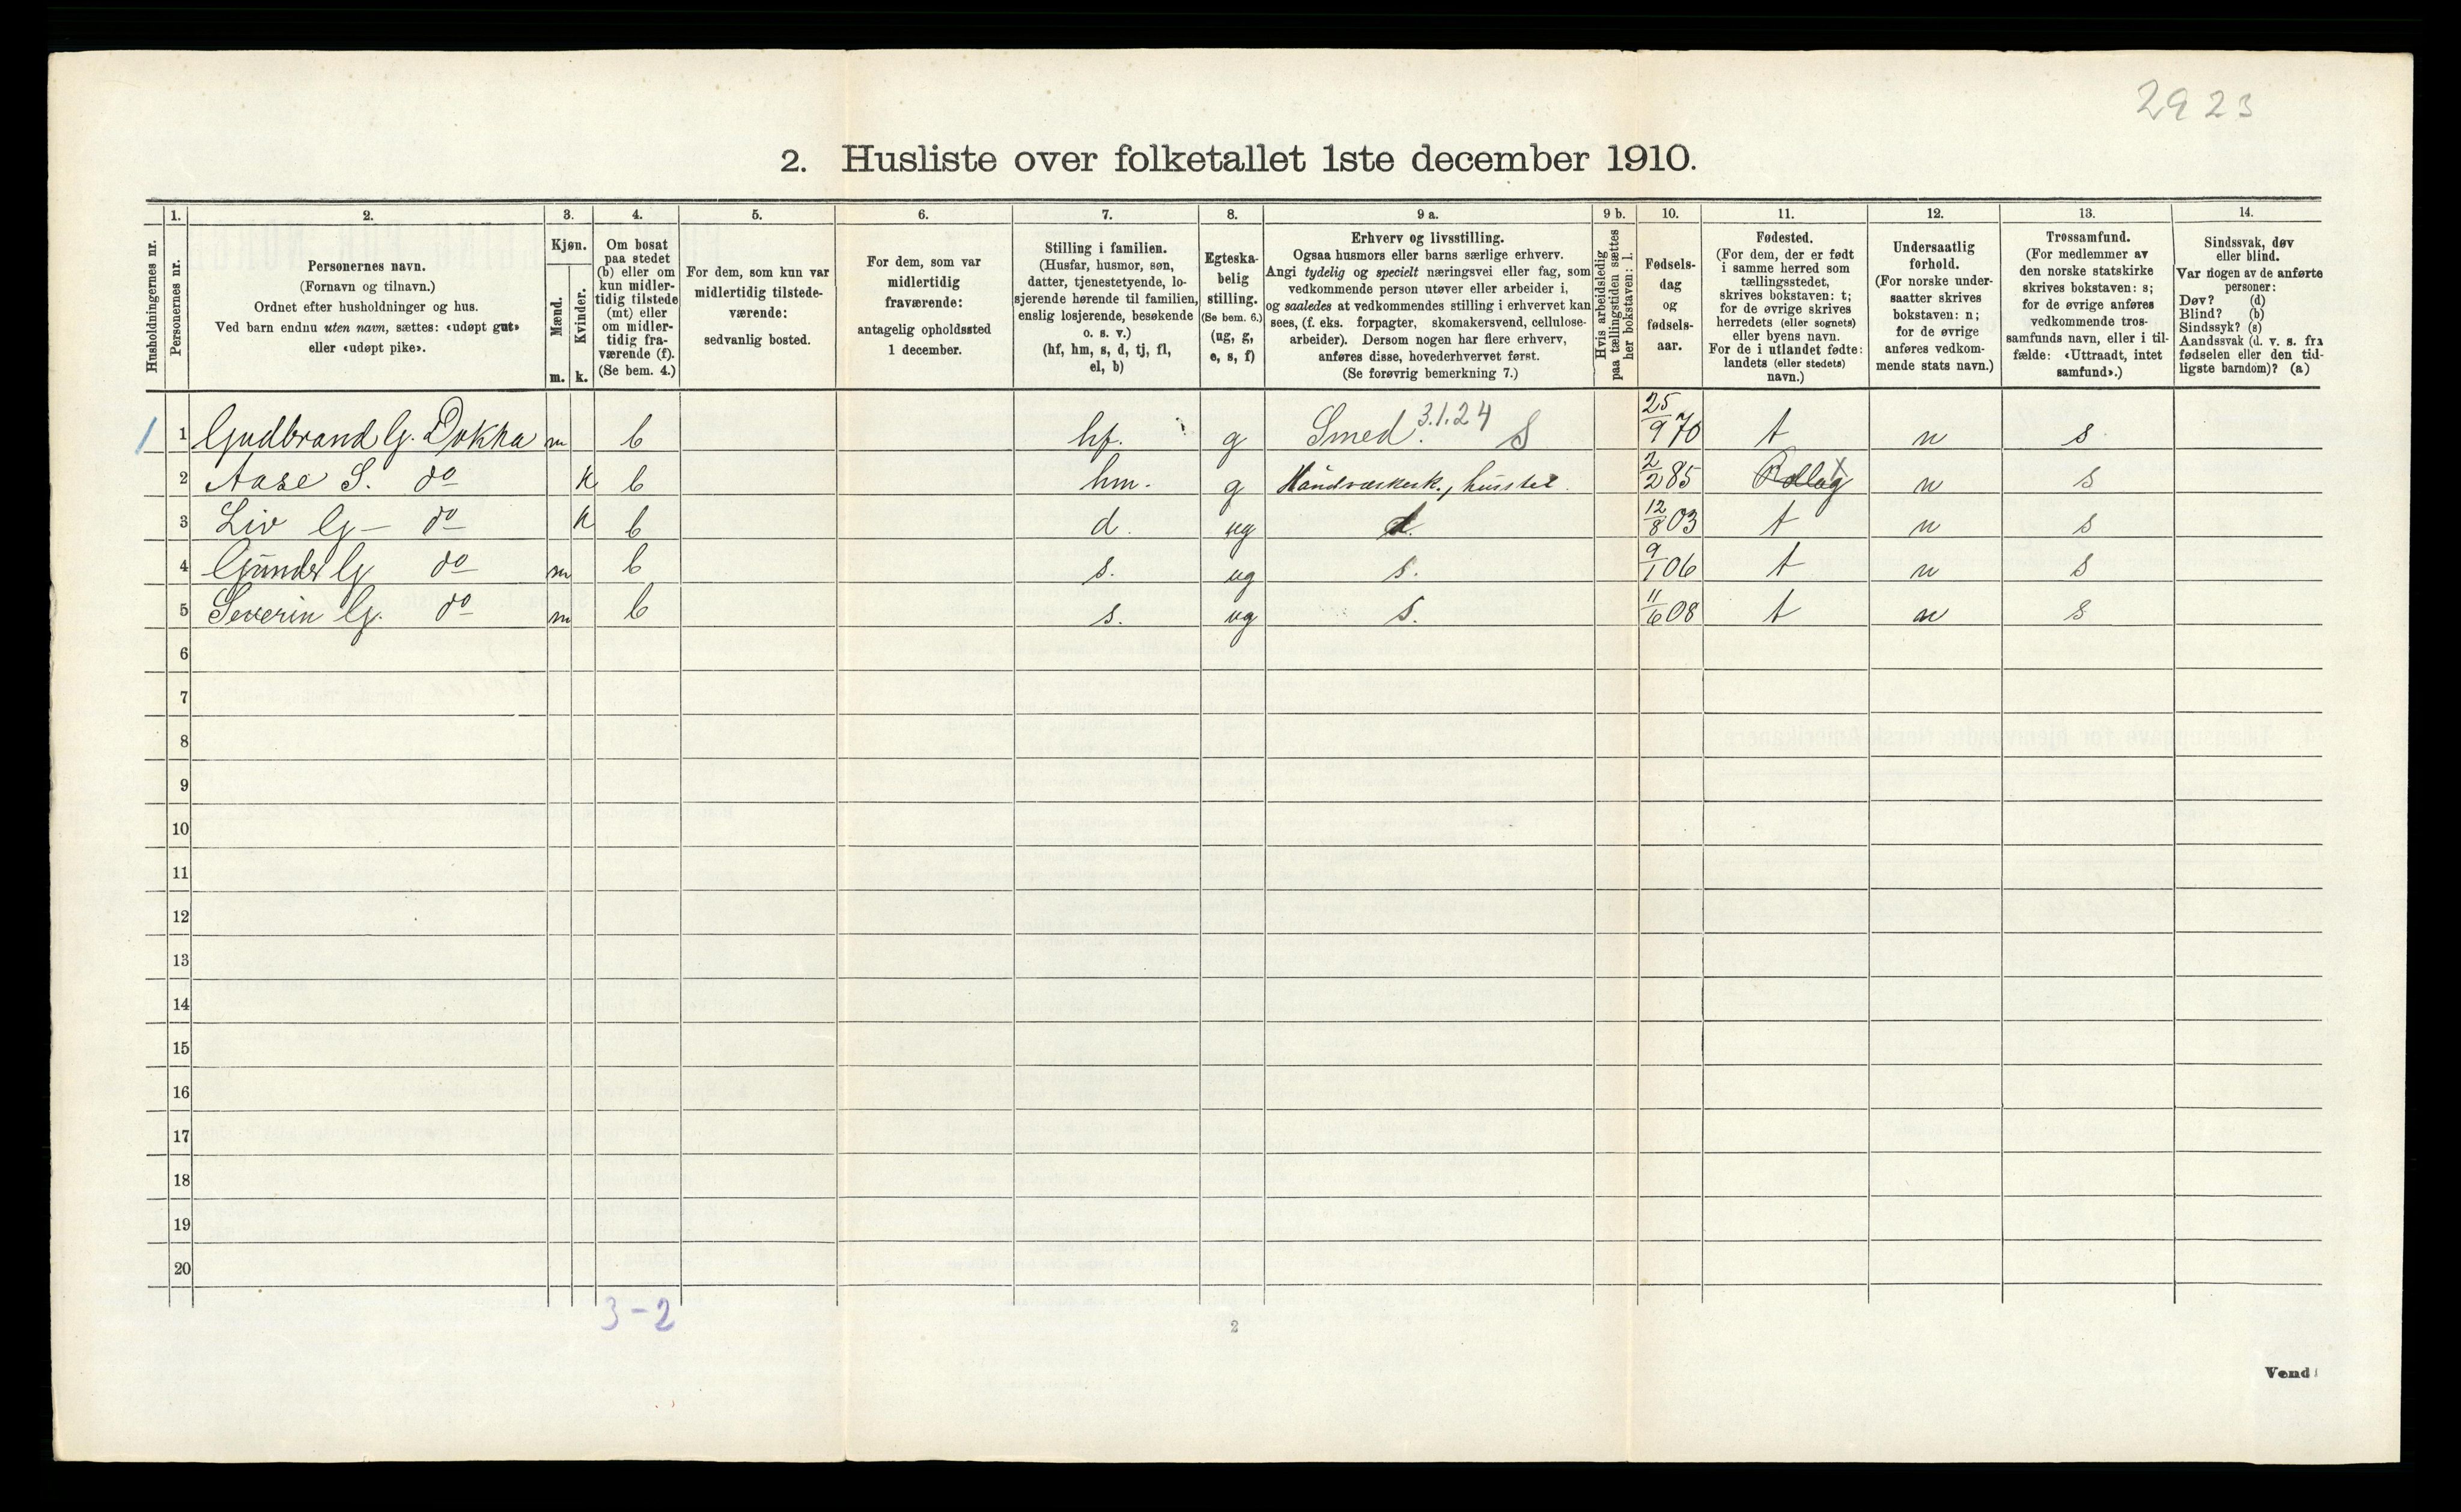 2923
2. Husliste over folketallet 1ste december 1910.
Husholdningernes nr.
1.
Personernes nr.
2.
Personernes navn.
(Fornavn og tilnavn.)
Ordnet efter husholdninger og hus.
Ved barn endnu uten navn, sættes: «udøpt gut»
eller «udøpt pike».
3.
Kjøn.
Mænd.
Kvinder.
m. k.
4.
Om bosat
paa stedet
(b) eller om
kun midler-
tidig tilstede
(mt) eller
om midler-
tidig fra-
værende (f).
(Se bem. 4.)
5.
For dem, som kun var
midlertidig tilstede-
værende:
sedvanlig bosted.
6.
For dem, som var
midlertidig
fraværende:
antagelig opholdssted
1 december.
7.
Stilling i familien.
(Husfar, husmor, søn,
datter, tjenestetyende, lo-
sjerende hørende til familien,
enslig losjerende, besøkende
o. s. v.)
(hf, hm, s, d, tj, fl,
el, b)
8.
Egteska-
belig
stilling.
(Se bem. 6.)
(ug, g,
e, s, f)
9 a.
Erhverv og livsstilling.
Ogsaa husmors eller barns særlige erhverv.
Angi tydelig og specielt næringsvei eller fag, som
vedkommende person utøver eller arbeider i,
og saaledes at vedkommendes stilling i erhvervet kan
sees, (f. eks. forpagter, skomakersvend, cellulose-
arbeider). Dersom nogen har flere erhverv,
anføres disse, hovederhvervet først.
(Se forøvrig bemerkning 7.)
9 b.
Hvis arbeidsledig
paa tællingstiden sættes
her bokstaven: l.
10.
Fødsels-
dag
og
fødsels-
aar.
11.
Fødested.
(For dem, der er født
i samme herred som
tællingsstedet,
skrives bokstaven: t;
for de øvrige skrives
herredets (eller sognets)
eller byens navn.
For de i utlandet fødte:
landets (eller stedets)
navn.)
12.
Undersaatlig
forhold.
(For norske under-
saatter skrives
bokstaven: n;
for de øvrige
anføres vedkom-
mende stats navn.)
13.
Trossamfund.
(For medlemmer av
den norske statskirke
skrives bokstaven: s;
for de øvrige anføres
vedkommende tros-
samfunds navn, eller i til-
fælde: «Uttraadt, intet
samfund».)
14.
Sindssvak, døv
eller blind.
Var nogen av de anførte
personer:
Døv? (d)
Blind? (b)
Sindssyk? (s)
Aandssvak (d. v. s. fra
fødselen eller den tid-
ligste barndom)? (a)
1 1 Gudbrand G. Dokka m b hf. g Smed. 3.1.24 S 25/9 70 t n s
2 Aase S. do k b hm. g Håndværkerk., husstel. 2/2 85 Rollag n s
3 Liv G- do k b d. ug d. 12/8 03 t n s
4 Gunder G do m b s. ug s. 9/1 06 t n s
5 Severin G. do m b s. ug s. 11/6 08 t n s
6
7
8
9
10
11
12
13
14
15
16
17
18
19
20
3-2
2
Vend!